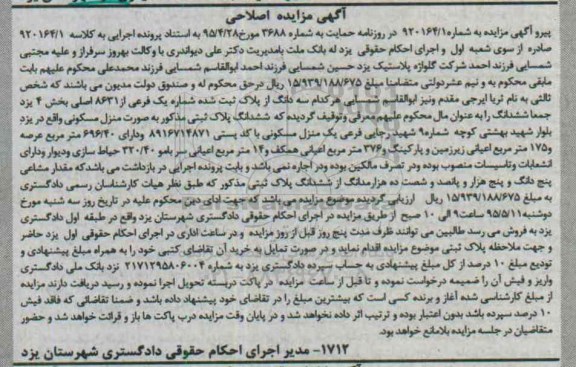 آگهی مزایده اصلاحی
پیرو آگهی مزایده به شماره ۹۲۰۱۶۴/۱ در روزنامه حمایت به شماره ۳۶۸۸ مورخ ۹۵/۴/۲۸ به استناد پرونده اجرایی به کلاسه ۹۲۰۱۶۴/۱
صادره از سوی شعبه اول و اجرای احکام حقوقی یزد له بانک ملت بامدیریت دکتر علی دیواندری با وکالت بهروز سرفراز و علیه مجتبی
شمسایی فرزند احمد شرکت گلواژه پلاستیک یزد حسین شمسایی فرزند احمد ابوالقاسم شمسایی فرزند محمدعلی محکوم علیهم بابت
مابقی محکوم به و نیم عشردولتی متضامنا مبلغ ۱۵/۹۳۹/۱۸۸/۶۷۵ ریال درحق محکوم له و صندوق دولت مدیون می باشند که شخص
ثالثی به نام ثریا ایرجی مقدم ونیز ابوالقاسم شمسایی هرکدام سه دانگ از پلاک ثبت شده شماره یک فرعی از ۸۶۳۱ اصلی بخش ۴ یزد
جمعا ششدانگ را به عنوان مال محکوم علیهم معرفی وتوقیف گردیده که ششدانگ پلاک ثبتی مذکور به صورت منزل مسکونی واقع در یزد
بلوار شهید بهشتی کوچه شماره۹ شهید رجایی فرعی یک منزل مسکونی با کد پستی ۸۹۱۶۷۱۴۸۷۱ ودارای ۶۹۶/۴۰ متر مربع عرصه
و۱۷۵ متر مربع اعیانی زیرزمین و پارکینگ و۳۷۶ متر مربع اعیانی همکف و۱۴ متر مربع اعیانی بامو ۳۲۰/۴۰ حیاط سازی ودیوار ودارای
انشعابات وتاسیسات منصوب بوده ودر تصرف مالکین بوده ودر اجاره نمی باشد و بابت پرونده اجرایی در بازداشت می باشدکه مقدار مشاعی
پنج دانگ و پنج هزار و پانصد و شصت ده هزارمدانگ از ششدانگ پلاک ثبتی مذکور که طبق نظر هیات کارشناسان رسمی دادگستری
به مبلغ ۱۵/۹۳۹/۱۸۸/۶۷۵ ریال ارزیابی گردیده موضوع مزایده می باشد که جهت ادای دین محکوم علیه در تاریخ روز سه شنبه مورخ
دوشنبه۹۵/۵/۱۱ ساعت۹ الی ۱۰ صبح از طریق مزایده در اجرای احکام حقوقی دادگستری شهرستان یزد واقع در طبقه اول دادگستری
یزد به فروش می رسد طالبین می توانند ظرف مدت پنج روز قبل از روز مزایده و در ساعات اداری در اجرای احکام حقوقی اول یزد حاضر
و جهت ملاحظه پلاک ثبتی موضوع مزایده اقدام نماید و در صورت تمایل به خرید آن تقاضای کتبی خود را به همراه مبلغ پیشنهادی و
تودیع مبلغ ۱۰ درصد از کل مبلغ پیشنهادی به حساب سپرده دادگستری یزد به شماره ۲۱۷۱۲۹۵۸۰۶۰۰۲ نزد بانک ملی دادگستری
واریز و فیش آن را ضمیمه درخواست نموده و تا قبل از ساعت مزایده در پاکت دربسته تحویل اجرا نموده و رسید دریافت دارند مزایده
از مبلغ کارشناسی شده آغاز و برنده کسی است که بیشترین مبلغ را در تقاضای خود پیشنهاد داده باشد و ضمنا تقاضائی که فاقد فیش
۱۰ درصد سپرده باشد بدون اعتبار بوده و ترتیب اثر داده نخواهد شد و در پایان وقت مزایده درب پاکت ها باز و قرائت خواهد شد و حضور
متقاضیان در جلسه مزایده بلامانع خواهد بود.
۱۷۱۲- مدیر اجرای احکام حقوقی دادگستری شهرستان یزد